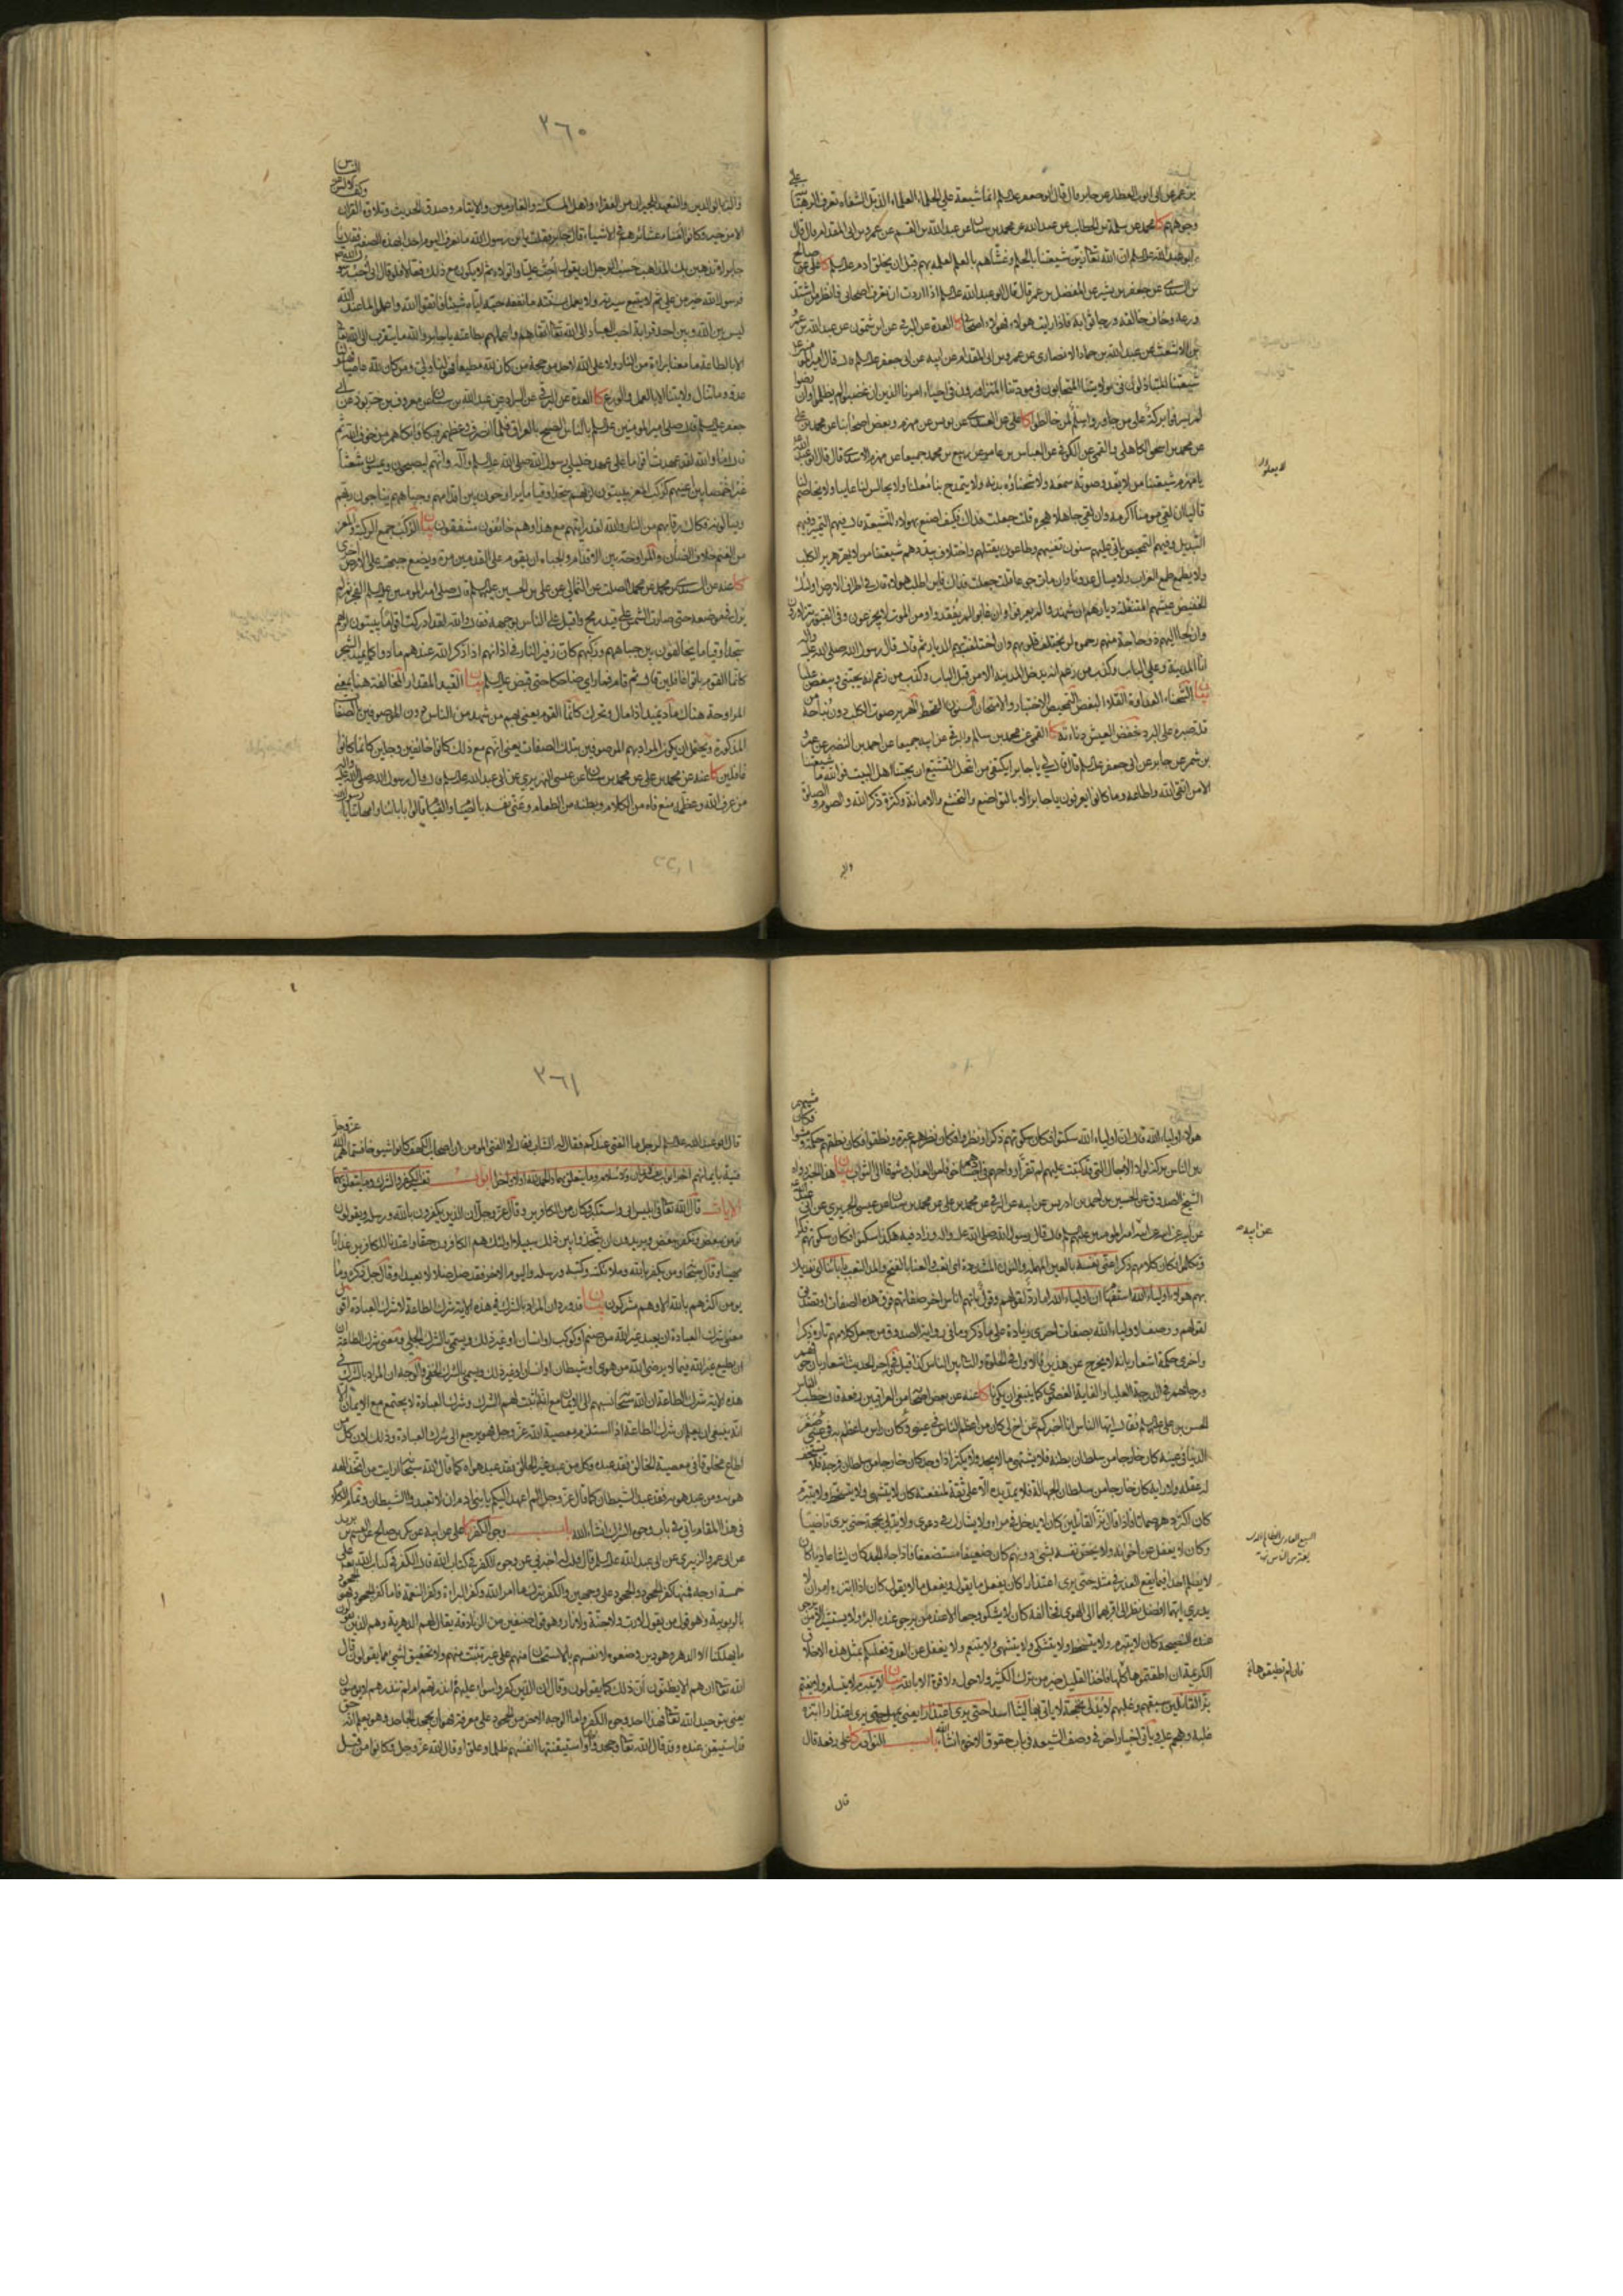 بن عمر عن ابى ايوب العطار عن جابر قال قال ابو جعفر عليه السلم انما شيعة على الحلماء العلماء الذبل الشفاه تعرف الرهبانية على
وجوههم كا محمد عن سلمة بن الخطاب عن عبد الله عن محمد بن سنان عن عبد الله بن القسم عن عمرو بن ابى المقدام قال قال
ابو عبد الله عليه السلم ان الله تعالى زين شيعتنا بالحلم وغشاهم بالعلم لعلمه بهم قبل ان يخلق ادم عليه السلم كا على عن صالح
بن السندى عن جعفر بن بشير عن المفضل بن عمر قال قال ابو عبد الله عليه السلم اذا اردت ان تعرف اصحابى فانظر من اشتد
ورعه وخاف خالقه ورجا ثوابه فاذا رايت هولاء فهولاء اصحابى كا العدة عن البرقى عن ابن شمون عن عبد الله بن عمرو
بن الاشعث عن عبد الله بن حماد الانصارى عن عمرو بن ابى المقدام عن ابيه عن ابى جعفر عليه السلم قال قال امير المؤمنين
شيعتنا المتباذلون فى ولايتنا المتحابون فى مودتنا المتزاورون فى احياء امرنا الذين ان غضبوا لم يظلموا وان رضوا
لم يسرفوا بركة على من جاوروا سلم لمن خالطوا
عن محمد بن اسحق الكاهلى
يا مهزم شيعتنا من لا يعدو صوته سمعه ولا شحناؤه بدنه ولا يمتدح بنا معلنا ولا يجالس لنا عايبا ولا يخاصم لنا
قاليا ان لقى مومنا اكرمه وان لقى جاهلا هجره قلت جعلت فداك فكيف اصنع بهولاء المتشيعة قال فيهم التمييز وفيهم
التبديل وفيهم التمحيص ياتى عليهم سنون تفنيهم وطاعون يقتلهم واختلاف يبددهم شيعتنا من لا يهر هرير الكلب
ولا يطمع طمع الغراب ولا يسال عدونا وان مات جوعا قلت جعلت فداك فاين اطلب هولاء قال فى اطراف الارض اولئك
الخفيض عيشهم المنتقلة ديارهم ان شهدوا لم يعرفوا وان غابوا لم يفتقدوا ومن الموت لا يجزعون وفى القبور يتزاورون
وان لجا اليهم ذو حاجة منهم رحموه لن يختلف قلوبهم وان اختلفت بهم الديار ثم قال قال رسول الله صلى الله عليه واله
انا المدينة وعلى الباب وكذب من زعم انه يدخل المدينة الا من قبل الباب وكذب من زعم انه يحبنى ويبغض عليا
بيان الشحناء العداوة القلاء البغض التمحيص الاختبار والامتحان السنون القحط الهرير صوت الكلب دون نباحه من
قلة صبره على البرد خفض العيش دناءته كا القمى عن محمد بن سالم والبرقى عن ابيه جميعا عن احمد بن النضر عن عمرو
بن شمر عن جابر عن ابى جعفر عليه السلم قال قال لى يا جابر ايكتفى من انتحل التشيع ان يحبنا اهل البيت فوالله ما شيعتنا
الا من اتقى الله واطاعه وما كانوا يعرفون يا جابر الا بالتواضع والتخشع والامانة وكثرة ذكر الله والصوم والصلوة
والبر
لا يعدو
٣٦٠
والبر بالوالدين والتعهد للجيران من الفقراء واهل المسكنة والغارمين والايتام وصدق الحديث وتلاوة القران وكف الالسن عن الناس
الا من خير وكانوا امناء عشائرهم فى الاشياء قال جابر فقلت يا ابن رسول الله ما نعرف اليوم احدا بهذه الصفة فقال يا
جابر لا تذهبن بك المذاهب حسب الرجل ان يقول احب عليا واتولاه ثم لا يكون مع ذلك فعالا فلو قال انى احب رسول الله
فرسول الله خير من على ثم لا يتبع سيرته ولا يعمل بسنته ما نفعه حبه اياه شيئا فاتقوا الله واعملوا لما عند الله
ليس بين الله وبين احد قرابة احب العباد الى الله تعالى اتقاهم واعملهم بطاعته يا جابر والله ما يتقرب الى الله تعالى
الا بالطاعة ما معنا براءة من النار ولا على الله لاحد من حجة من كان لله مطيعا فهو لنا ولى ومن كان لله عاصيا فهو لنا
عدو وما تنال ولايتنا الا بالعمل والورع كا العدة عن البرقى عن البزاد عن عبد الله بن سنان عن معروف بن خربوذ عن ابى
جعفر عليه السلم قال صلى امير المومنين عليه السلم بالناس الصبح بالعراق فلما انصرف وعظهم فبكى وابكاهم من خوف الله ثم
قال اما والله لقد عهدت اقواما على عهد خليلى رسول الله صلى الله عليه واله وانهم ليصبحون ويمسون شعثا
غبرا خمصا بين اعينهم كركب المعزى يبيتون لربهم سجدا وقياما يراوحون بين اقدامهم وجباههم يناجون ربهم
ويسالونه فكاك رقابهم من النار والله لقد رايتهم مع هذا وهم خائفون مشفقون بيان الركب جمع الركبة والمعز
من الغنم خلاف الضان والمراوحة بين الاقدام والجباه ان يقوم على القدمين مرة ويضع جبهته على الارض اخرى
كا عنه عن السندى بن محمد عن محمد بن الصلت عن الثمالى عن على بن الحسين عليهما السلم قال صلى امير المومنين عليه السلم الفجر ثم لم
يزل فى موضعه حتى صارت الشمس على قيد رمح واقبل على الناس بوجهه فقال والله لقد ادركت اقواما يبيتون لربهم
سجدا وقياما يخالفون بين جباههم وركبهم كان زفير النار فى اذانهم اذا ذكر الله عندهم مادوا كما يميد الشجر
كانما القوم باتوا غافلين قال ثم قام فما راى ضاحكا حتى قبض عليه السلم بيان القيد المقدار المخالفة هنا بمعنى
المراوحة هناك ماد يميد اذا مال وتحرك كانما القوم يعنى بهم من شهد من الناس دون الموصوفين بالصفات
المذكورة ويحتمل ان يكون المراد بهم الموصوفين بتلك الصفات يعنى انهم مع ذلك كانوا خائفين وجلين كانما كانوا
غافلين كا عنه عن محمد بن على عن محمد بن سنان عن عيسى النهريرى عن ابى عبد الله عليه السلم قال قال رسول الله صلى الله عليه واله
من عرف الله وعظمه منع فاه من الكلام وبطنه من الطعام وعنى نفسه بالصيام والقيام قالوا بابائنا وامهاتنا يا رسول الله
هولاء اولياء الله قال ان اولياء الله سكتوا فكان سكوتهم ذكرا ونظروا فكان نظرهم عبرة ونطقوا فكان نطقهم حكمة ومشوا فكان مشيهم
بين الناس بركة لولا الاجال التى قد كتبت عليهم لم تقر ارواحهم فى اجسادهم خوفا من العذاب وشوقا الى الثواب بيان هذا الحديث رواه
الشيخ الصدوق عن الحسين بن احمد بن ادريس عن ابيه عن البرقى عن محمد بن على عن محمد بن سنان عن عيسى الجريرى عن ابى عبد الله
عن ابيه
وتكلموا فكان كلامهم ذكرا عنى نفسه بالعين المهملة والنون المشددة اى اتعب والعنا بالفتح والمد التعب
بهم هولاء اولياء الله استفهام ان اولياء الله
لقولهم ووصف لاولياء الله بصفات اخرى زيادة على ما ذكر وما فى رواية الصدوق من جعل كلامهم تارة ذكرا
واخرى حكمة اشعار بانه لا يخرج عن هذين فالاول فى الخلوة والثانى بين الناس
ورجائهم فى الدرجة العليا والغاية القصوى كما ينبغى ان يكونا كا عنه عن بعض اصحابه من العراقيين رفعه قال خطب الناس
الحسن بن على عليهما السلم فقال ايها الناس انا اخبركم عن اخ لى كان من اعظم الناس فى عينى وكان راس ما عظم به فى عينى صغر
الدنيا فى عينه كان خارجا من سلطان بطنه فلا يشتهى ما لا يجد ولا يكثر اذا وجد كان خارجا من سلطان فرجه فلا يستخف
له عقله ولا رايه كان خارجا من سلطان الجهالة فلا يمد يده الا على ثقة لمنفعة كان لا يتشهى ولا يتسخط ولا يتبرم
كان اكثر دهره صماتا فاذا قال بذ القائلين كان لا يدخل فى مراء ولا يشارك فى دعوى ولا يدلى بحجة حتى يرى قاضيا
وكان لا يغفل عن اخوانه ولا يخص نفسه بشىء دونهم كان ضعيفا مستضعفا فاذا جاء الجد كان ليثا عاديا كان
لا يلوم احدا فيما يقع العذر فى مثله حتى يرى اعتذارا كان يفعل ما يقول ويفعل ما لا يقول كان اذا ابتزه امران لا
يدرى ايهما افضل نظر الى اقربهما الى الهوى فخالفه كان لا يشكو وجعا الا عند من يرجو عنده البرء ولا يستشير الا من يرجو
عنده النصيحة كان لا يتبرم ولا يتسخط ولا يتشكى ولا يتشهى ولا ينتقم ولا يغفل عن العدو فعليكم بمثل هذه الاخلاق
الكريمة ان اطقتموها كلها فاخذ القليل خير من ترك الكثير ولا حول ولا قوة الا بالله بيان لا يتبرم لا يسام ولا يغتم
بذ القائلين سبقهم وغلبهم لا يدلى بحجة لا ياتى بها ليثا اسدا حتى يرى اعتذارا ابتزه
غلبه وهجم عليه وياتى اخبار اخر فى وصف الشيعة فى باب حقوق الاخوة انشاء الله باب النوادر كا على رفعه قال
قال
عن ابيه
فان لم تطيقوها
٣٦١
قال ابو عبد الله عليه السلم لرجل ما الفتى عندكم فقال له الشاب فقال لا الفتى المومن ان اصحاب الكهف كانوا شيوخا فسماهم الله عز وجل
فتية بايمانهم اخر ابواب والحمد لله اولا واخرا ابواب تفسير الكفر والشرك وما يتعلق بهما
الايات قال الله تعالى الا ابليس ابى واستكبر وكان من الكافرين وقال عز وجل ان الذين يكفرون بالله ورسله ويقولون
نومن ببعض ونكفر ببعض ويريدون ان يتخذوا بين ذلك سبيلا اولئك هم الكافرون حقا واعتدنا للكافرين عذابا
مهينا وقال سبحانه ومن يكفر بالله وملائكته وكتبه ورسله واليوم الاخر فقد ضل ضلالا بعيدا وقال جل ذكره وما
يومن اكثرهم بالله الا وهم مشركون بيان قد ورد ان المراد بالشرك فى هذه الاية شرك الطاعة لا شرك العبادة
معنى شرك العبادة ان يعبد غير الله من صنم او كوكب او انسان او غير ذلك ويسمى بالشرك الجلى ومعنى شرك الطاعة
ان يطيع غير الله فيما لا يرضى الله من هوى او شيطان او انسان او غير ذلك ويسمى بالشرك الخفى والوجه ان المراد بالشرك فى
هذه الاية شرك الطاعة ان الله سبحانه نسبهم الى الايمان مع اثبات لهم الشرك وشرك العبادة لا يجتمع مع الايمان
انه ينبغى ان يعلم ان شرك الطاعة اذا استلزم معصية الله عز وجل فهو يرجع الى شرك العبادة وذلك لان كل من
اطاع مخلوقا فى معصية الخالق فقد عبده وكل من عبد غير الخالق فقد عبد هواه كما قال الله سبحانه ارايت من اتخذ الهه
هواه ومن عبد هواه فقد عبد الشيطان كما قال عز وجل الم اعهد اليكم يا بنى ادم ان لا تعبدوا الشيطان وتمام الكلام
فى هذا المقام ياتى فى باب وجوه الشرك انشاء الله باب وجوه الكفر كا على عن ابيه عن بكر بن صالح عن القسم بن بريد
عن ابى عمرو الزبيرى عن ابى عبد الله عليه السلم قال قلت له اخبرنى عن وجوه الكفر فى كتاب الله قال الكفر فى كتاب الله تعالى على
خمسة اوجه فمنها كفر الجحود والجحود على وجهين والكفر بترك ما امر الله وكفر البراءة وكفر النعمة فاما كفر الجحود فهو الجحود
بالربوبية وهو قول من يقول لا رب ولا جنة ولا نار وهو قول صنفين من الزنادقة يقال لهم الدهرية وهم الذين يقولون
ما يهلكنا الا الدهر وهو دين وضعوه لانفسهم بالاستحسان منهم على غير تثبت منهم ولا تحقيق لشىء مما يقولون قال
الله تعالى ان هم الا يظنون ان ذلك كما يقولون وقال ان الذين كفروا سواء عليهم ءانذرتهم ام لم تنذرهم لا يومنون
يعنى بتوحيد الله تعالى فهذا احد وجوه الكفر واما الوجه الاخر من الجحود على معرفة فهو ان يجحد الجاحد وهو يعلم انه حق
قد استيقن عنده وقد قال الله تعالى وجحدوا بها واستيقنتها انفسهم ظلما وعلوا وقال الله عز وجل وكانوا من قبل